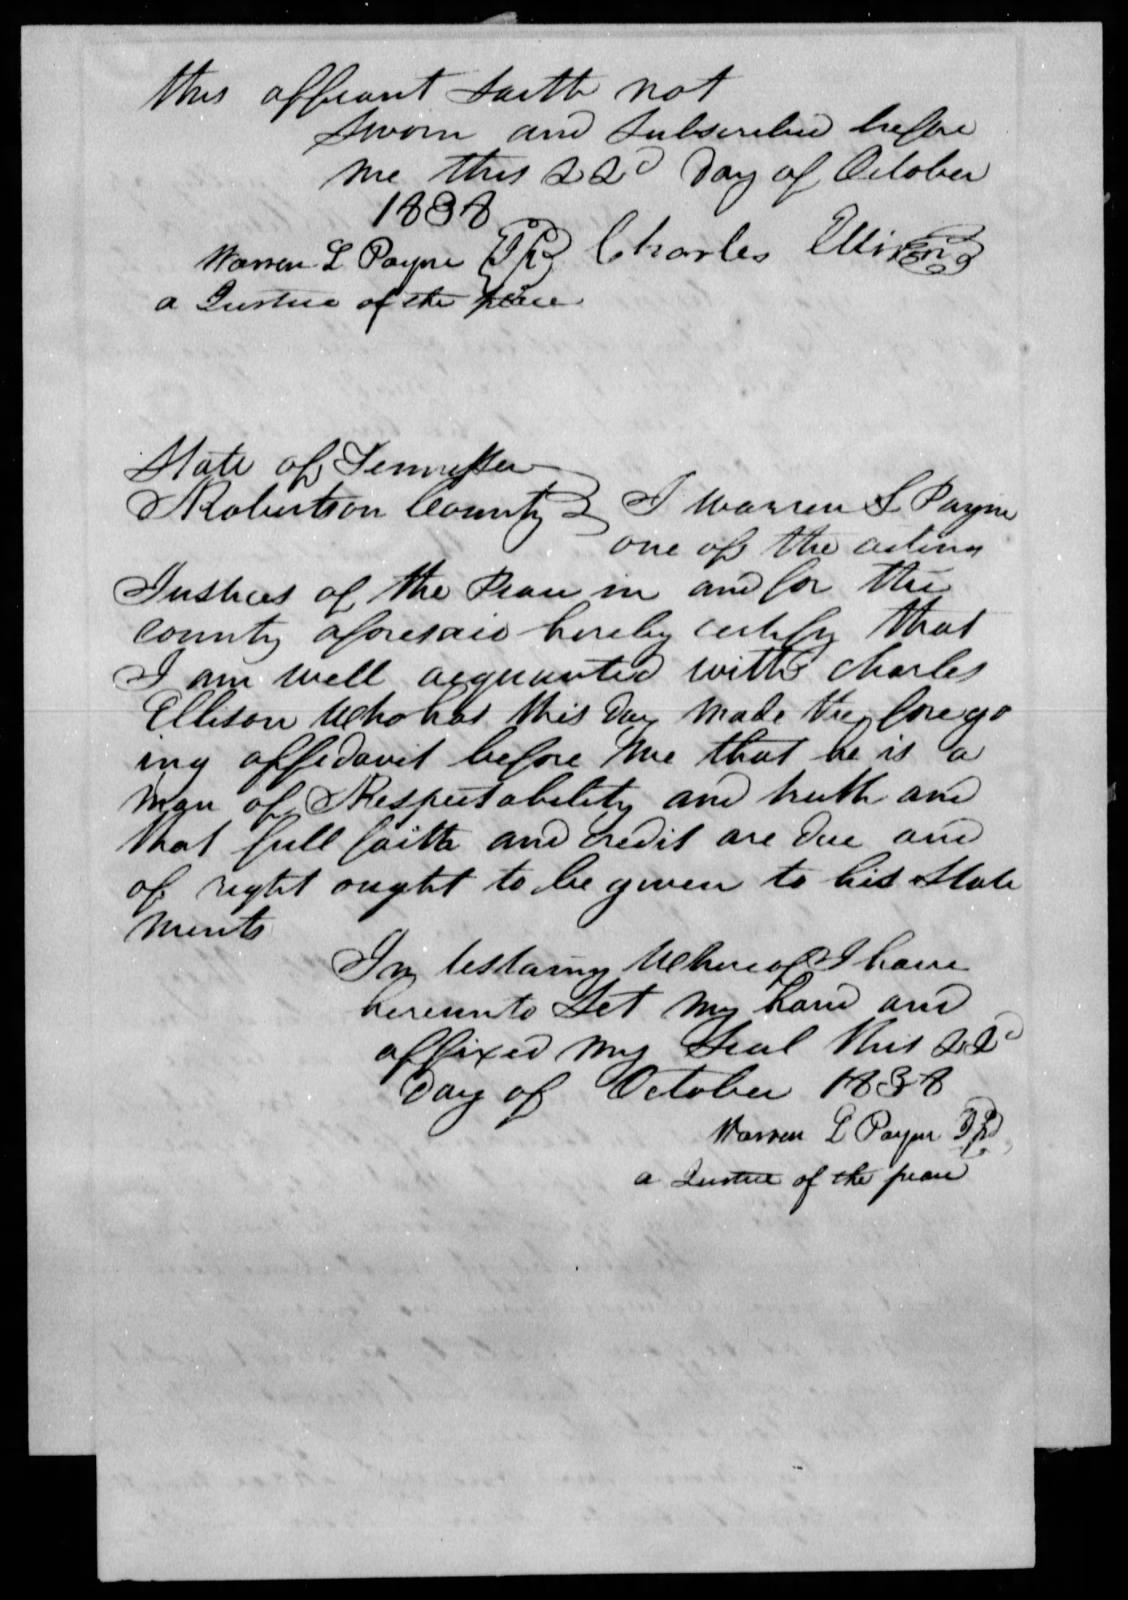 this affiant saith not
Sworn and Subscribed before
me this 22d Day of October
1838
Warren L Payne JP Charles Ellison
a Justice of the peace
State of Tennessee
Robertson County } I Warren L Payne
one of the acting
Justices of the Peace in and for the
County aforesaid hereby certify that
I am well acquanted with Charles
Ellison Who has this Day made the forego
ing affedavit before me that he is a
man of Respectability and truth and
that full faith and credit are due and
of right ought to be given to his State
ments
In testamony Whereof I have
hereunto Set my hand and
affixed my Seal this 22d
Day of October 1838
Warren L Payne JP
a Justice of the peace